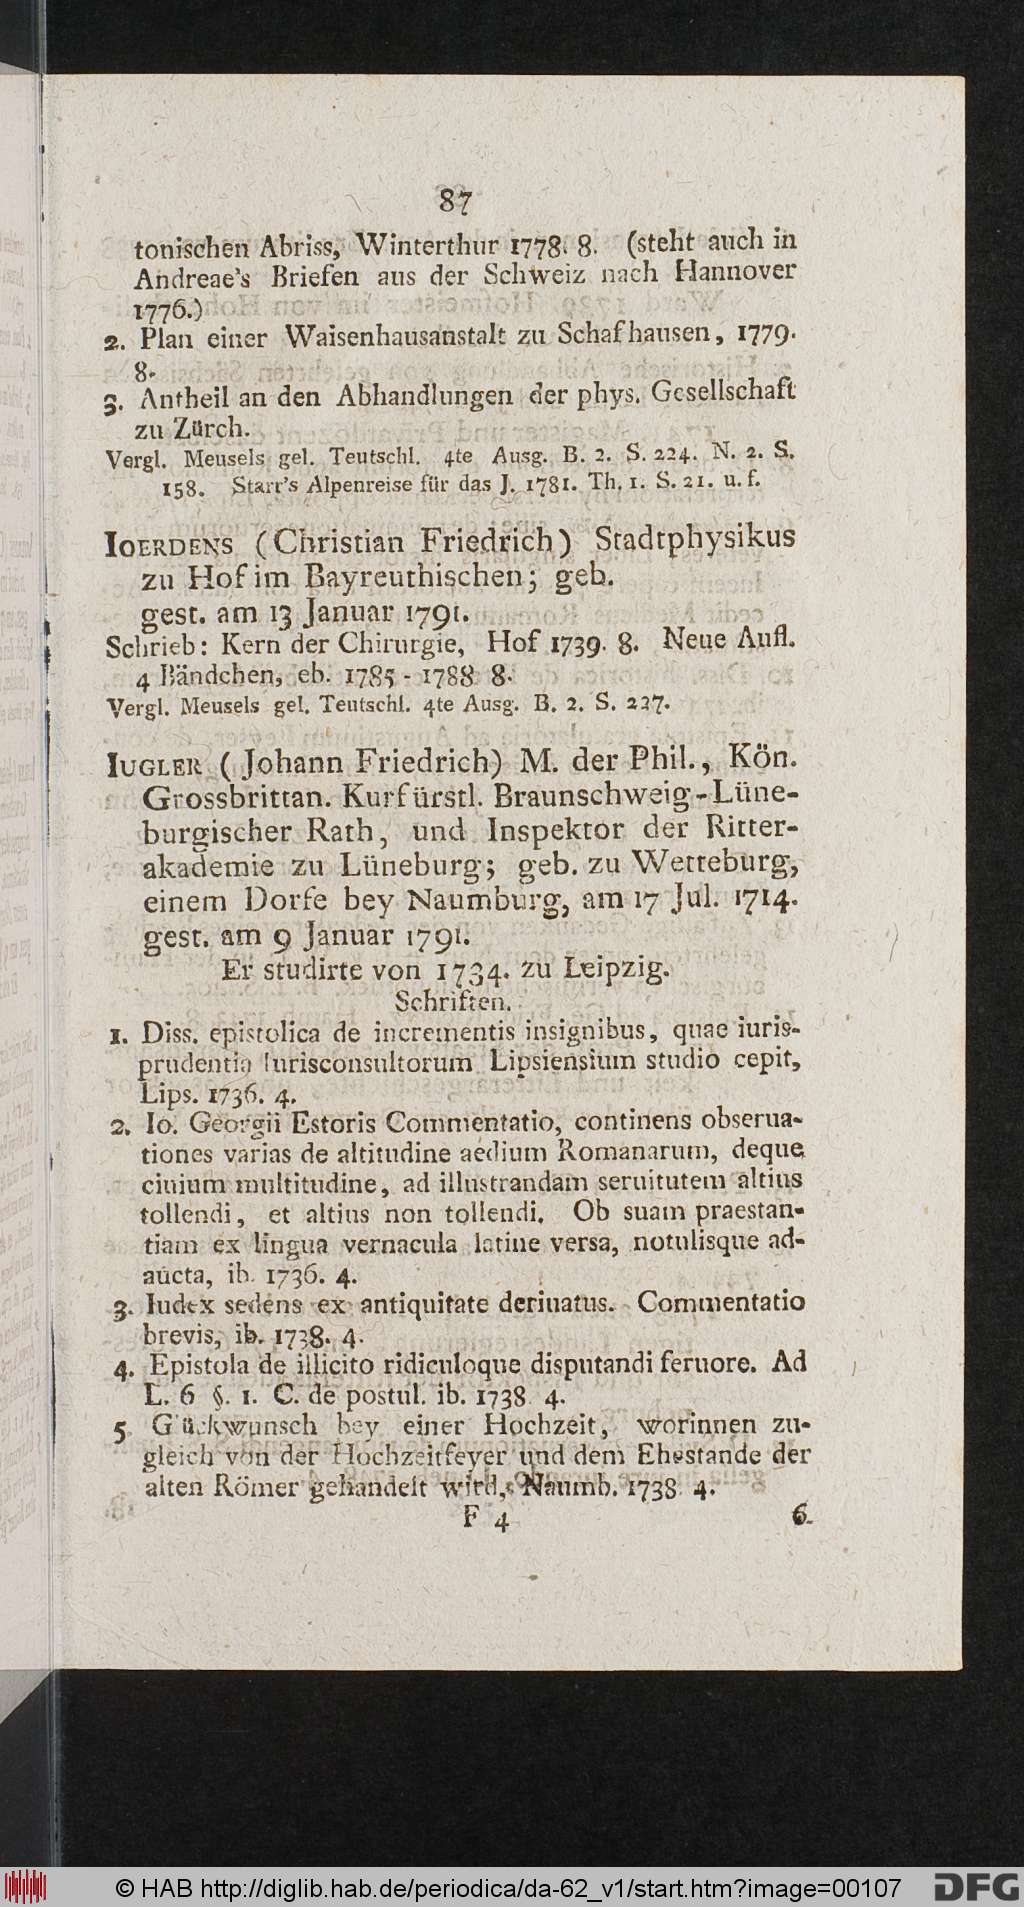 87
tonischen Abriss, Winterthur 1778. 8. (steht auch in
Andreae's Briefen aus der Schweiz nach Hannover
1776.)
2. Plan einer Waisenhausanstalt zu Schafhausen, 1779.
8.
3. Antheil an den Abhandlungen der phys. Gesellschaft
zu Zürch.
Vergl. Meusels gel. Teutschl. 4te Ausg. B. 2. S. 224. N. 2. S.
158. Starr's Alpenreise für das J. 1781. Th. 1. S. 21. u. f.
IOERDENS (Christian Friedrich) Stadtphysikus
zu Hof im Bayreuthischen; geb.
gest. am 13 Januar 1791.
Schrieb: Kern der Chirurgie, Hof 1739. 8. Neue Aufl.
4 Bändchen, eb. 1785 - 1788 8.
Vergl. Meusels gel. Teutschl. 4te Ausg. B. 2. S. 227.
IUGLER (Johann Friedrich) M. der Phil., Kön.
Grossbrittan. Kurfürstl. Braunschweig-Lüne-
burgischer Rath, und Inspektor der Ritter-
akademie zu Lüneburg; geb. zu Wetteburg,
einem Dorfe bey Naumburg, am 17 Jul. 1714.
gest. am 9 Januar 1791.
Er studirte von 1734. zu Leipzig.
Schriften.
1. Diss. epistolica de incrementis insignibus, quae iuris-
prudentia Iurisconsultorum Lipsiensium studio cepit,
Lips. 1736. 4.
2. Io. Georgii Estoris Commentatio, continens obserua-
tiones varias de altitudine aedium Romanarum, deque
ciuium multitudine, ad illustrandam seruitutem altius
tollendi, et altius non tollendi. Ob suam praestan-
tiam ex lingua vernacula latine versa, notulisque ad-
aucta, ib. 1736. 4.
3. Iudex sedens ex antiquitate deriuatus. Commentatio
brevis, ib. 1738. 4.
4. Epistola de illicito ridiculoque disputandi feruore. Ad
L. 6 §. 1. C. de postul. ib. 1738 4.
5 Glückwunsch bey einer Hochzeit, worinnen zu-
gleich von der Hochzeitfeyer und dem Ehestande der
alten Römer gehandelt wird, Naumb. 1738 4.
F 4 6.
© HAB http://diglib.hab.de/periodica/da-62_v1/start.htm?image=00107 DFG